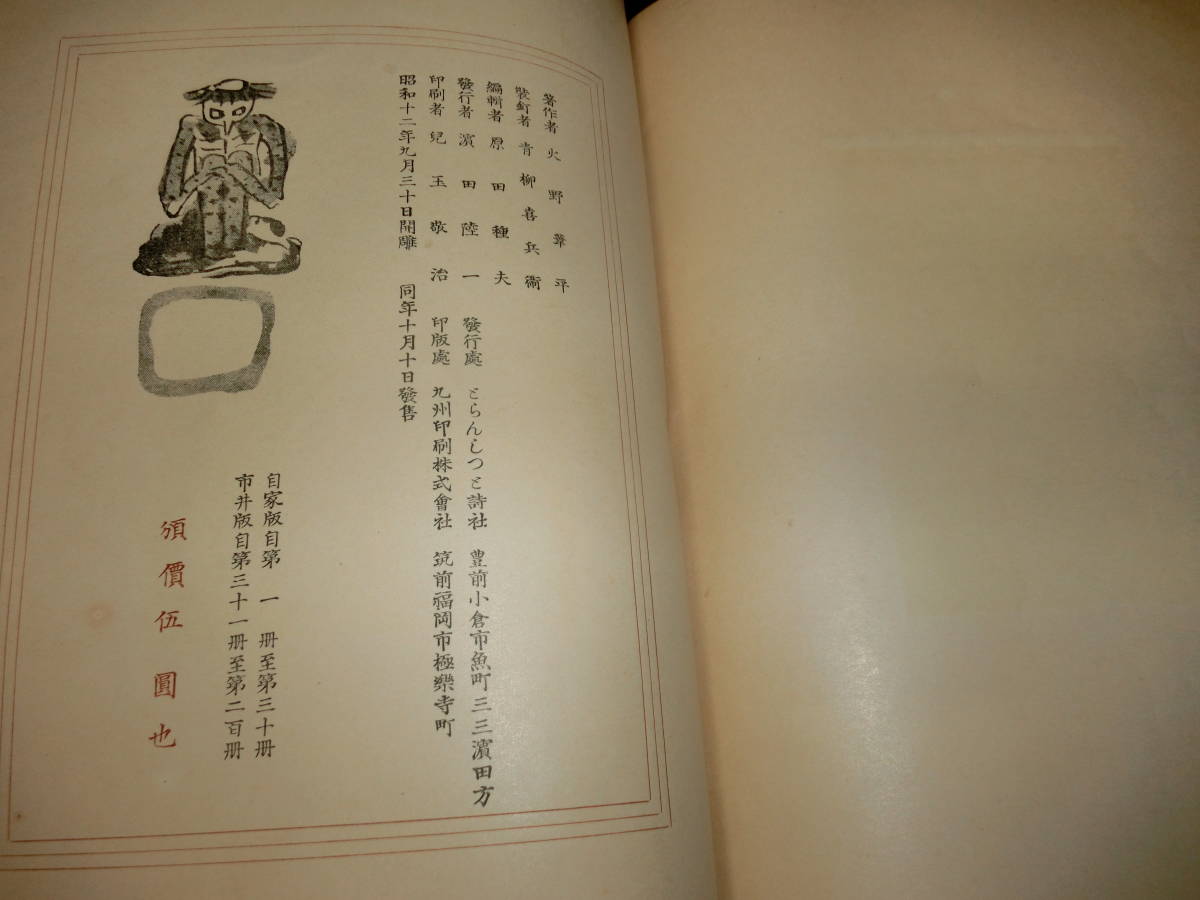 著作者 火野葦平
裝釘者 青柳喜兵衞
編輯者 原田種夫
發行者 濱田陸一 發行處 とらんしつと詩社 豊前小倉市魚町三三濱田方
印刷者 兒玉敬治 印版處 九州印刷株式會社 筑前福岡市極樂寺町
昭和十二年九月三十日開雕 同年十月十日發售
自家版自第一冊至第三十冊
市井版自第三十一冊至第二百冊
頒價伍圓也